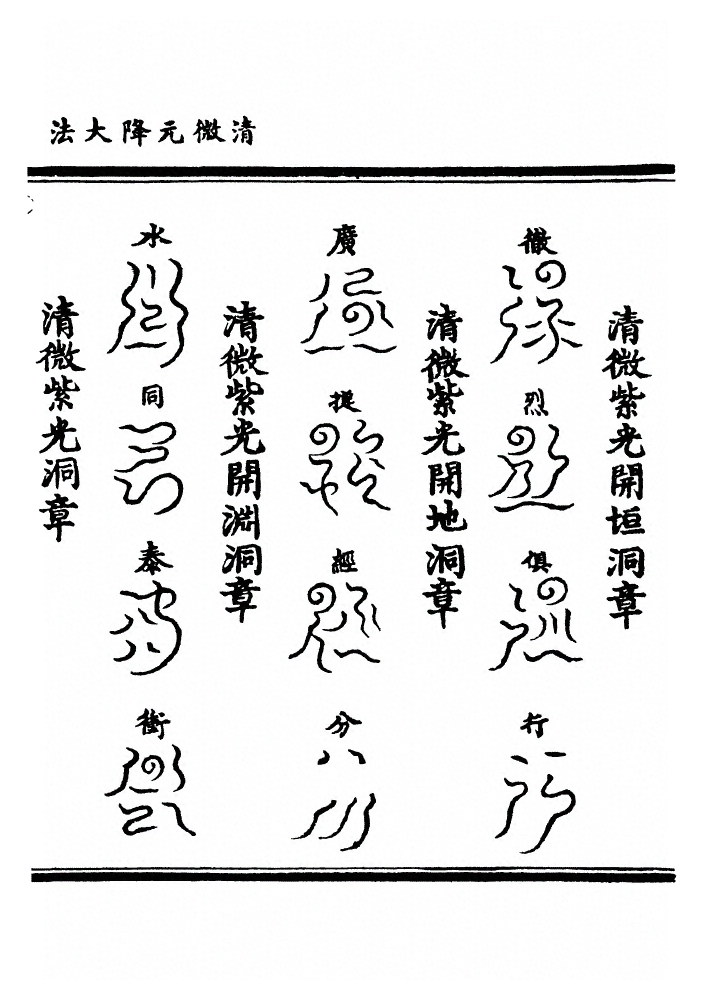 清微元降大法
清微紫光開垣洞章
徹烈俱行
清微紫光開地洞章
廣提經分
清微紫光開淵洞章
水同泰衝
清微紫光洞章